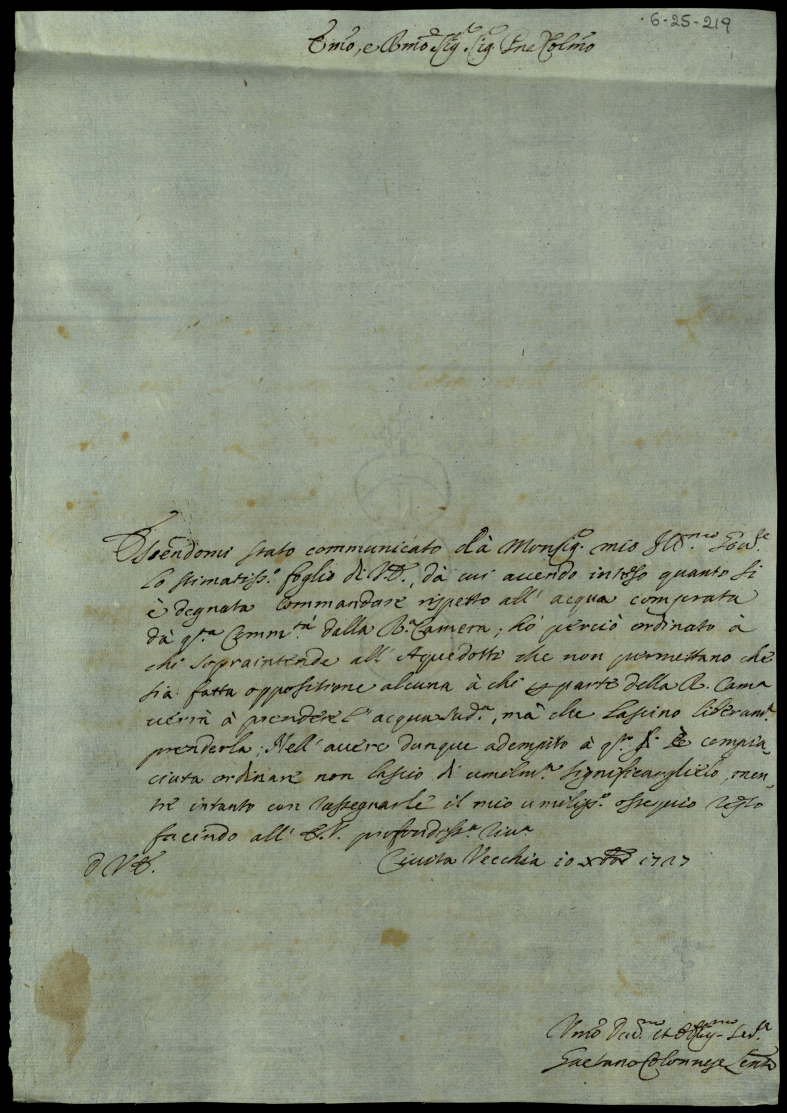 6-25-219
Emo, e Rmo Sig.r Sig. Pne Colmo
Essendomi stato communicato dà Monsig.r mio Ill.mo Gov.re
lo stimatiss.o foglio di V.E., dà cui avendo inteso quanto si
è degnata commandare rispetto all' acqua comprata
dà q.ta Comm.tà dalla R.a Camera; hò perciò ordinato à
chi sopraintende all' Aquedotti che non permettano che
sia fatta oppositione alcuna à chi p parte della R. Cam.a
verrà à prendere l' acqua sud.a, mà che lascino liberam.e
prenderla; Nell' avere dunque adempito à q.to si è compia,
ciuta ordinare non lascio di umilm.te significarglielo, men,
tre intanto con rassegnarle il mio umiliss.o ossequio resto
facendo all' E.V. profondiss.a riv.a
D V.E. Civita Vecchia 10 Xbre 1727
Umo Dev.mo et Obblig.mo Ser.e
Gaetano Colonnese